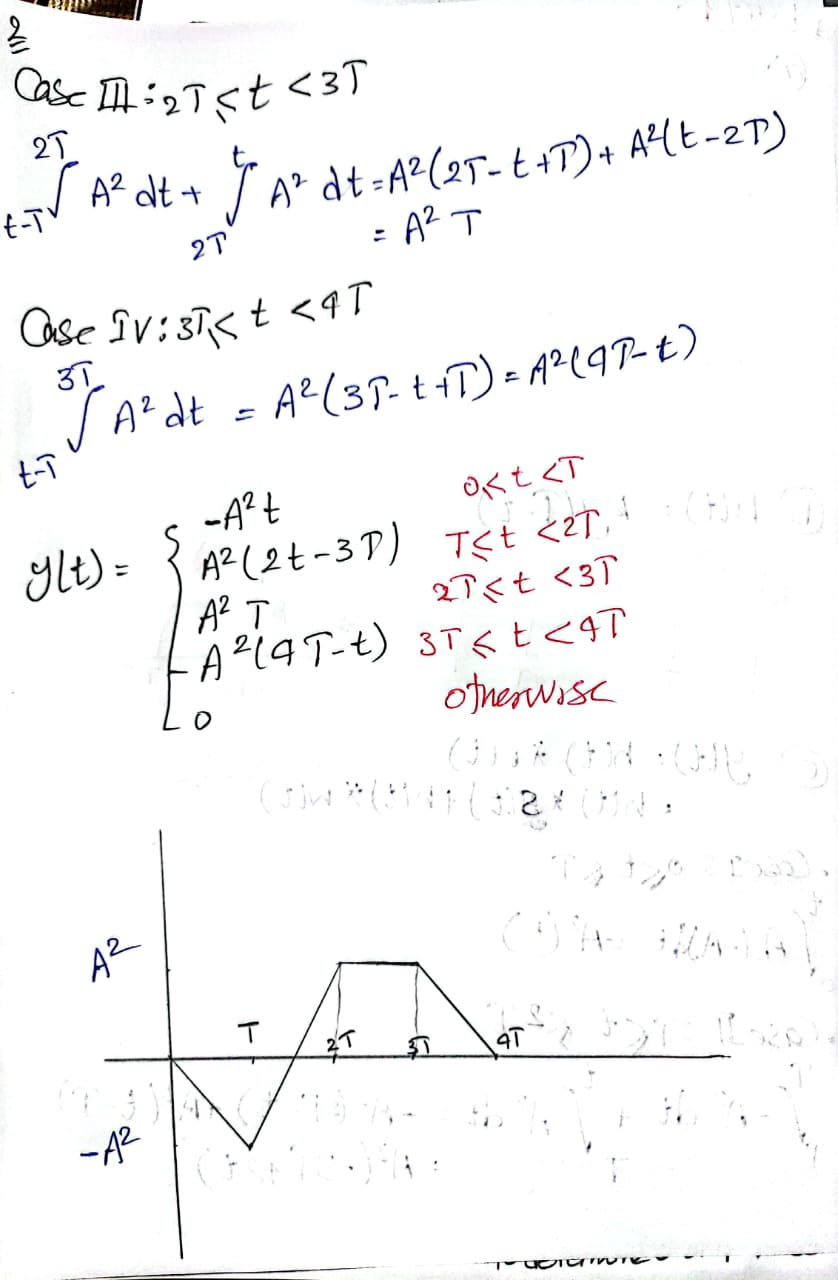 2
Case III : 2T ≤ t < 3T
∫_{t-T}^{2T} A² dt + ∫_{2T}^{t} A² dt = A²(2T - t + T) + A²(t - 2T)
= A² T
Case IV : 3T ≤ t < 4T
∫_{t-T}^{3T} A² dt = A²(3T - t + T) = A²(4T - t)
y(t) = { -A² t 0 ≤ t < T
A²(2t - 3T) T ≤ t < 2T
A² T 2T ≤ t < 3T
A²(4T - t) 3T ≤ t < 4T
0 otherwise
A²
T 2T 3T 4T
-A²